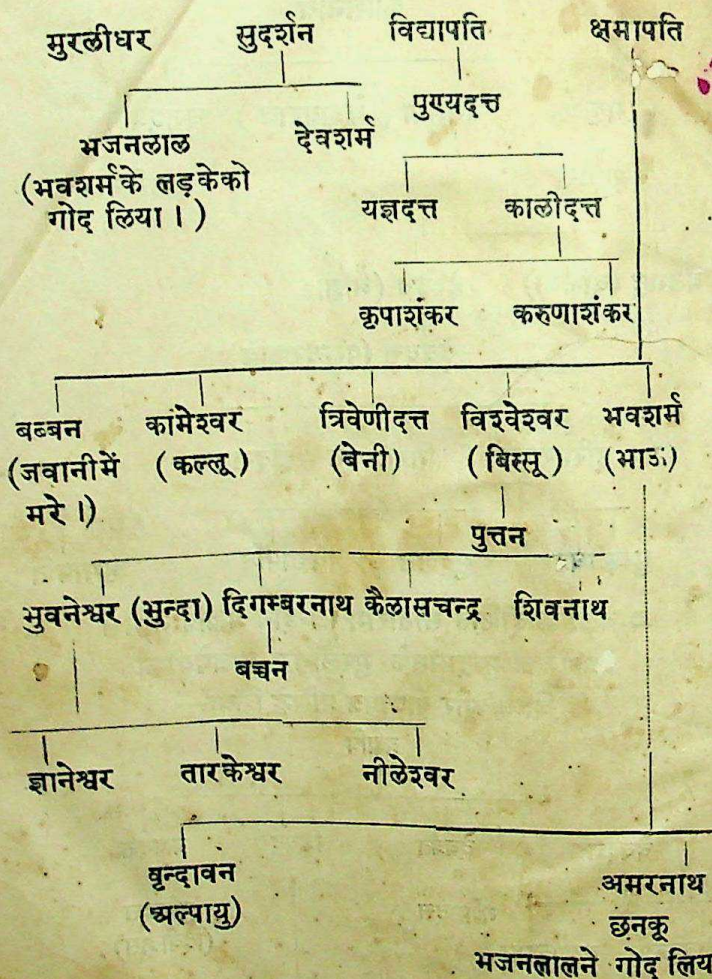 मुरलीधर सुदर्शन विद्यापति क्षमापति
पुण्यदत्त
भजनलाल देवशर्म
(भवशर्मके लड़केको
गोद लिया।)
यज्ञदत्त कालीदत्त
कृपाशंकर करुणाशंकर
बब्बन कामेश्वर त्रिवेणीदत्त विश्वेश्वर भवशर्म
(जवानीमें (कल्लू) (बेनी) (बिस्सू) (भाऊ)
मरे।)
पुत्तन
भुवनेश्वर (भुन्दा) दिगम्बरनाथ कैलासचन्द्र शिवनाथ
बच्चन
ज्ञानेश्वर तारकेश्वर नीलेश्वर
वृन्दावन
(अल्पायु)
अमरनाथ
छनकू
भजनलालने गोद लिय